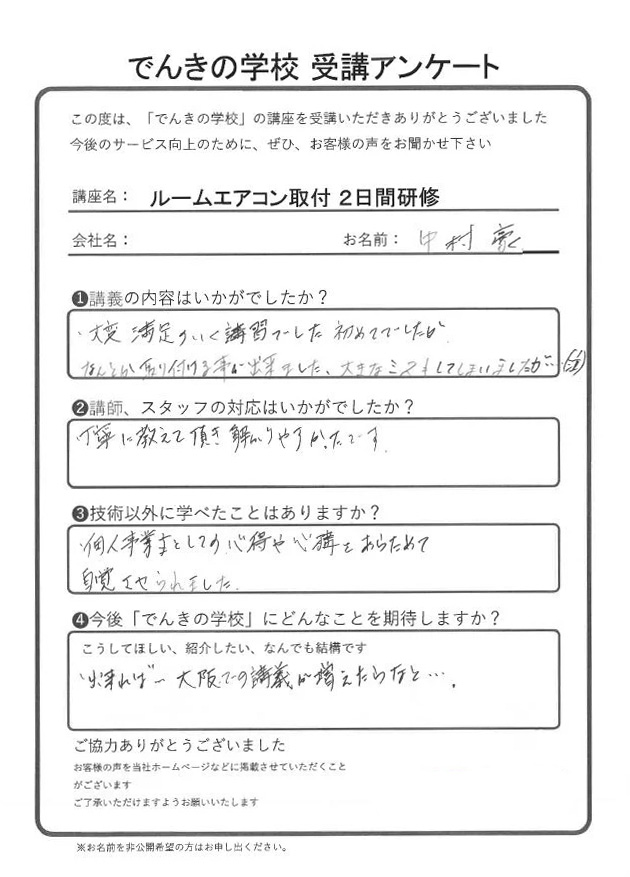 でんきの学校 受講アンケート
この度は、「でんきの学校」の講座を受講いただきありがとうございました
今後のサービス向上のために、ぜひ、お客様の声をお聞かせ下さい
講座名： ルームエアコン取付 2日間研修
会社名： お名前： 中村 亮
❶講義の内容はいかがでしたか？
・大変 満足のいく講習でした 初めてでしたが
なんとか取り付ける事が出来ました、大きなミスもしてしまいましたが…(汗)
❷講師、スタッフの対応はいかがでしたか？
・丁寧に教えて頂き解かりやすかったです.
❸技術以外に学べたことはありますか？
・個人事業主としての心得や心構えをあらためて
自覚させられました.
❹今後「でんきの学校」にどんなことを期待しますか？
こうしてほしい、紹介したい、なんでも結構です
・出来れば～大阪での講義が増えたらなと….
ご協力ありがとうございました
お客様の声を当社ホームページなどに掲載させていただくこと
がございます
ご了承いただけますようお願いいたします
※お名前を非公開希望の方はお申し出ください。